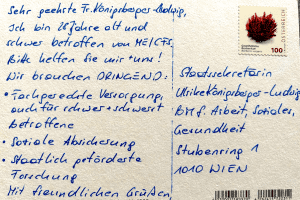 Sehr geehrte Fr. Königsberger-Ludwig,
Ich bin 28 Jahre alt und
schwer betroffen von ME/CFS.
Bitte helfen Sie mir + uns!
Wir brauchen DRINGEND:
• Fachgerechte Versorgung,
auch für schwer + schwerst
betroffene
• Soziale Absicherung
• Staatlich geförderte
Forschung
Mit freundlichen Grüßen,
ÖSTERREICH
100
Staatssekretärin
Ulrike Königsberger-Ludwig
BM f. Arbeit, Soziales,
Gesundheit
Stubenring 1
1010 WIEN